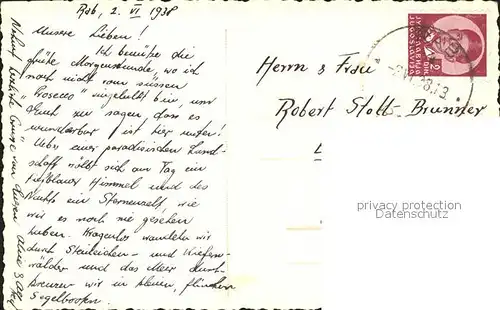 Rab, 2. VI 1938
Meine Lieben!
Ich benütze die
frühe Morgenstunde, wo ich
noch nicht vom süssen
"Prosecco" eingelullt bin, um
Euch zu sagen, dass es
wunderbar ist hier unten!
Ueber einer paradisischen Land-
schaft wölbt sich am Tag ein
tiefblauer Himmel und des
Nachts ein Sternenzelt, wie
wir es noch nie gesehen
haben. Kragenlos wandeln wir
durch Steineichen- und Kiefern-
wälder und das Meer durch-
kreuzen wir in kleinen, flinken
Segelbooten.
Herrn & Frau
Robert Stoll-Brunner
L